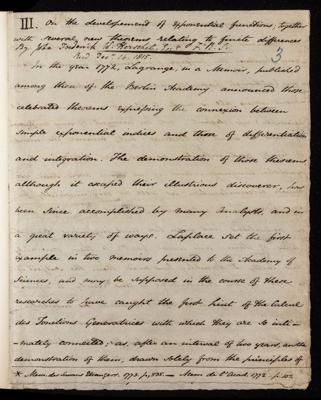 III. On the developement of exponential functions; together
with several new theorems relating to finite differences
By John Frederick W. Herschel, Esq. F.R.S.
Read Decr. 14. 1815.
3
In the year 1772, Lagrange, in a Memoir, published
among those of the Berlin Academy announced those
celebrated theorems expressing the connexion between
simple exponential indices and those of differentiation
and integration. The demonstration of those theorems
although it escaped their illustrious discoverer, has
been since accomplished by many Analysts, and in
a great variety of ways. Laplace set the first
example in two memoirs presented to the Academy of
Sciences, and may be supposed in the course of these
researches to have caught the first hint of the Calcul
des Fonctions Generatrices with which they are so inti-
-mately connected; as, after an interval of two years, another
demonstration of them, drawn solely from the principles of
* Mem. des Savans Etrangers. 1773. p. 535. — Mem. de l'Acad. 1772. p. 102